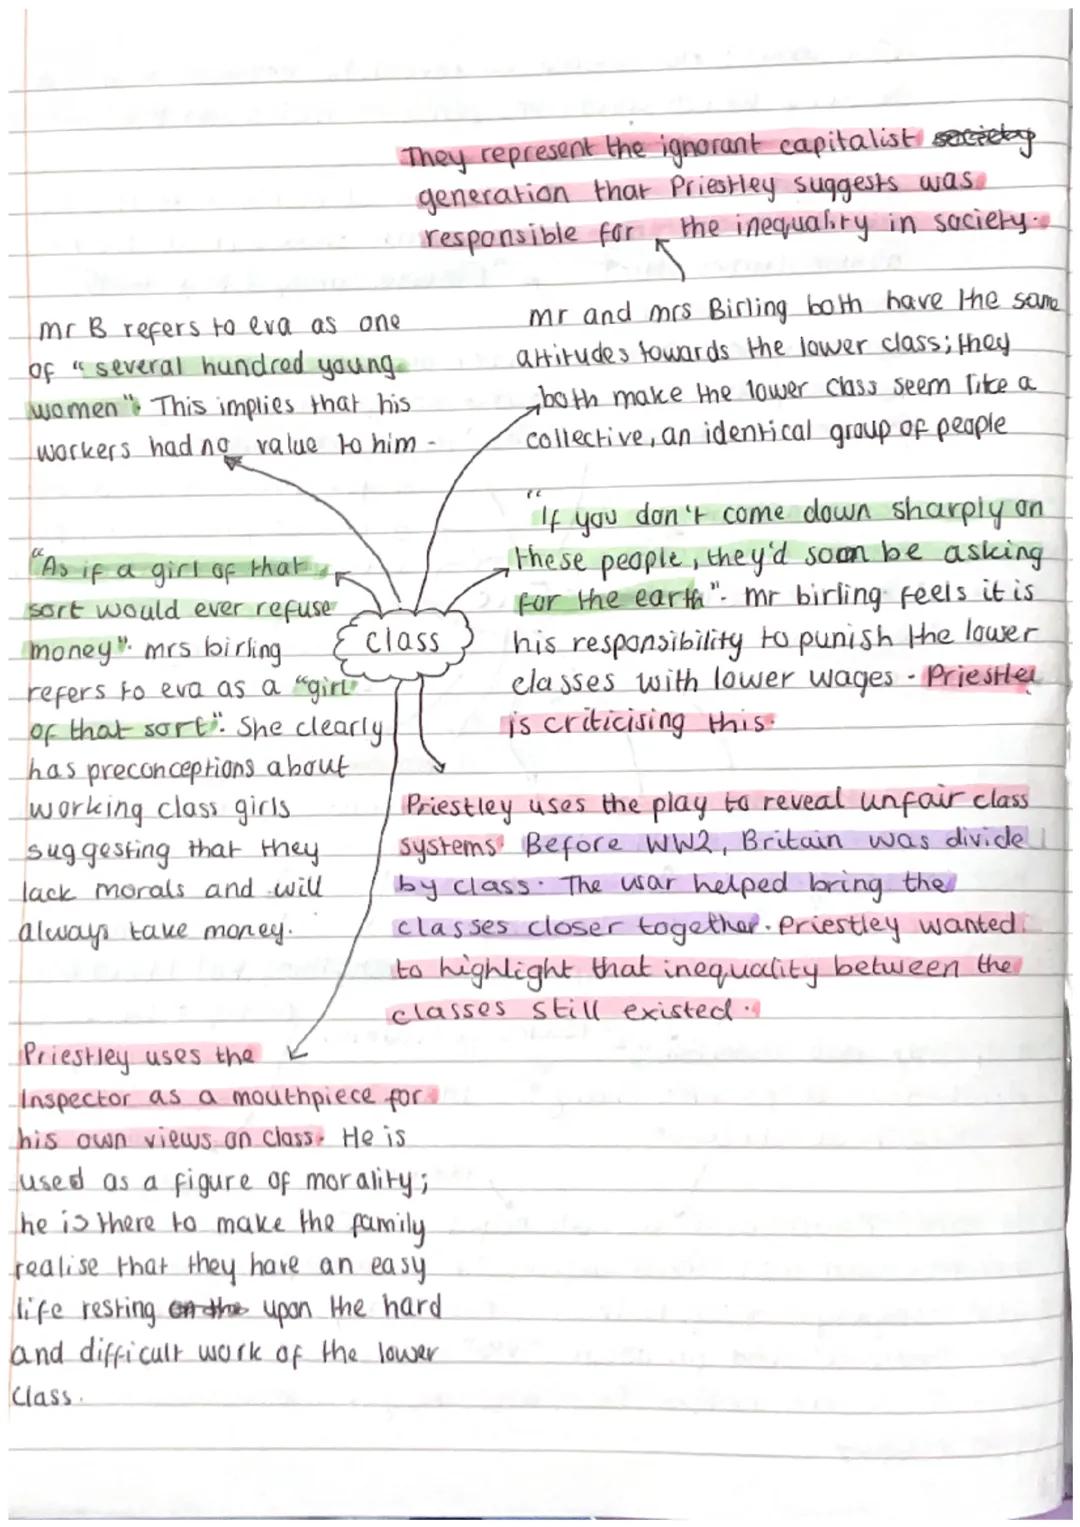 They represent the ignorant capitalist society
generation that Priestley suggests was
responsible for the inequality in society.
mr and mrs Birling both have the same
attitudes towards the lower class; they
both make the lower class seem like a
collective, an identical group of people
mr B refers to eva as one
of "several hundred young
women". This implies that his
workers had no value to him.
"If you don't come down sharply on
these people, they'd soon be asking
for the earth". mr birling feels it is
his responsibility to punish the lower
classes with lower wages. Priestley
is criticising this.
"As if a girl of that
sort would ever refuse
money". mrs birling
refers to eva as a "girl
of that sort". She clearly
has preconceptions about
working class girls
suggesting that they
lack morals and will
always take money.
class
Priestley uses the play to reveal unfair class
systems. Before WW2, Britain was divide
by class. The war helped bring the
classes closer together. Priestley wanted
to highlight that inequality between the
classes still existed.
Priestley uses the
Inspector as a mouthpiece for
his own views on class. He is
used as a figure of morality;
he is there to make the family
realise that they have an easy
life resting on the upon the hard
and difficult work of the lower
class.